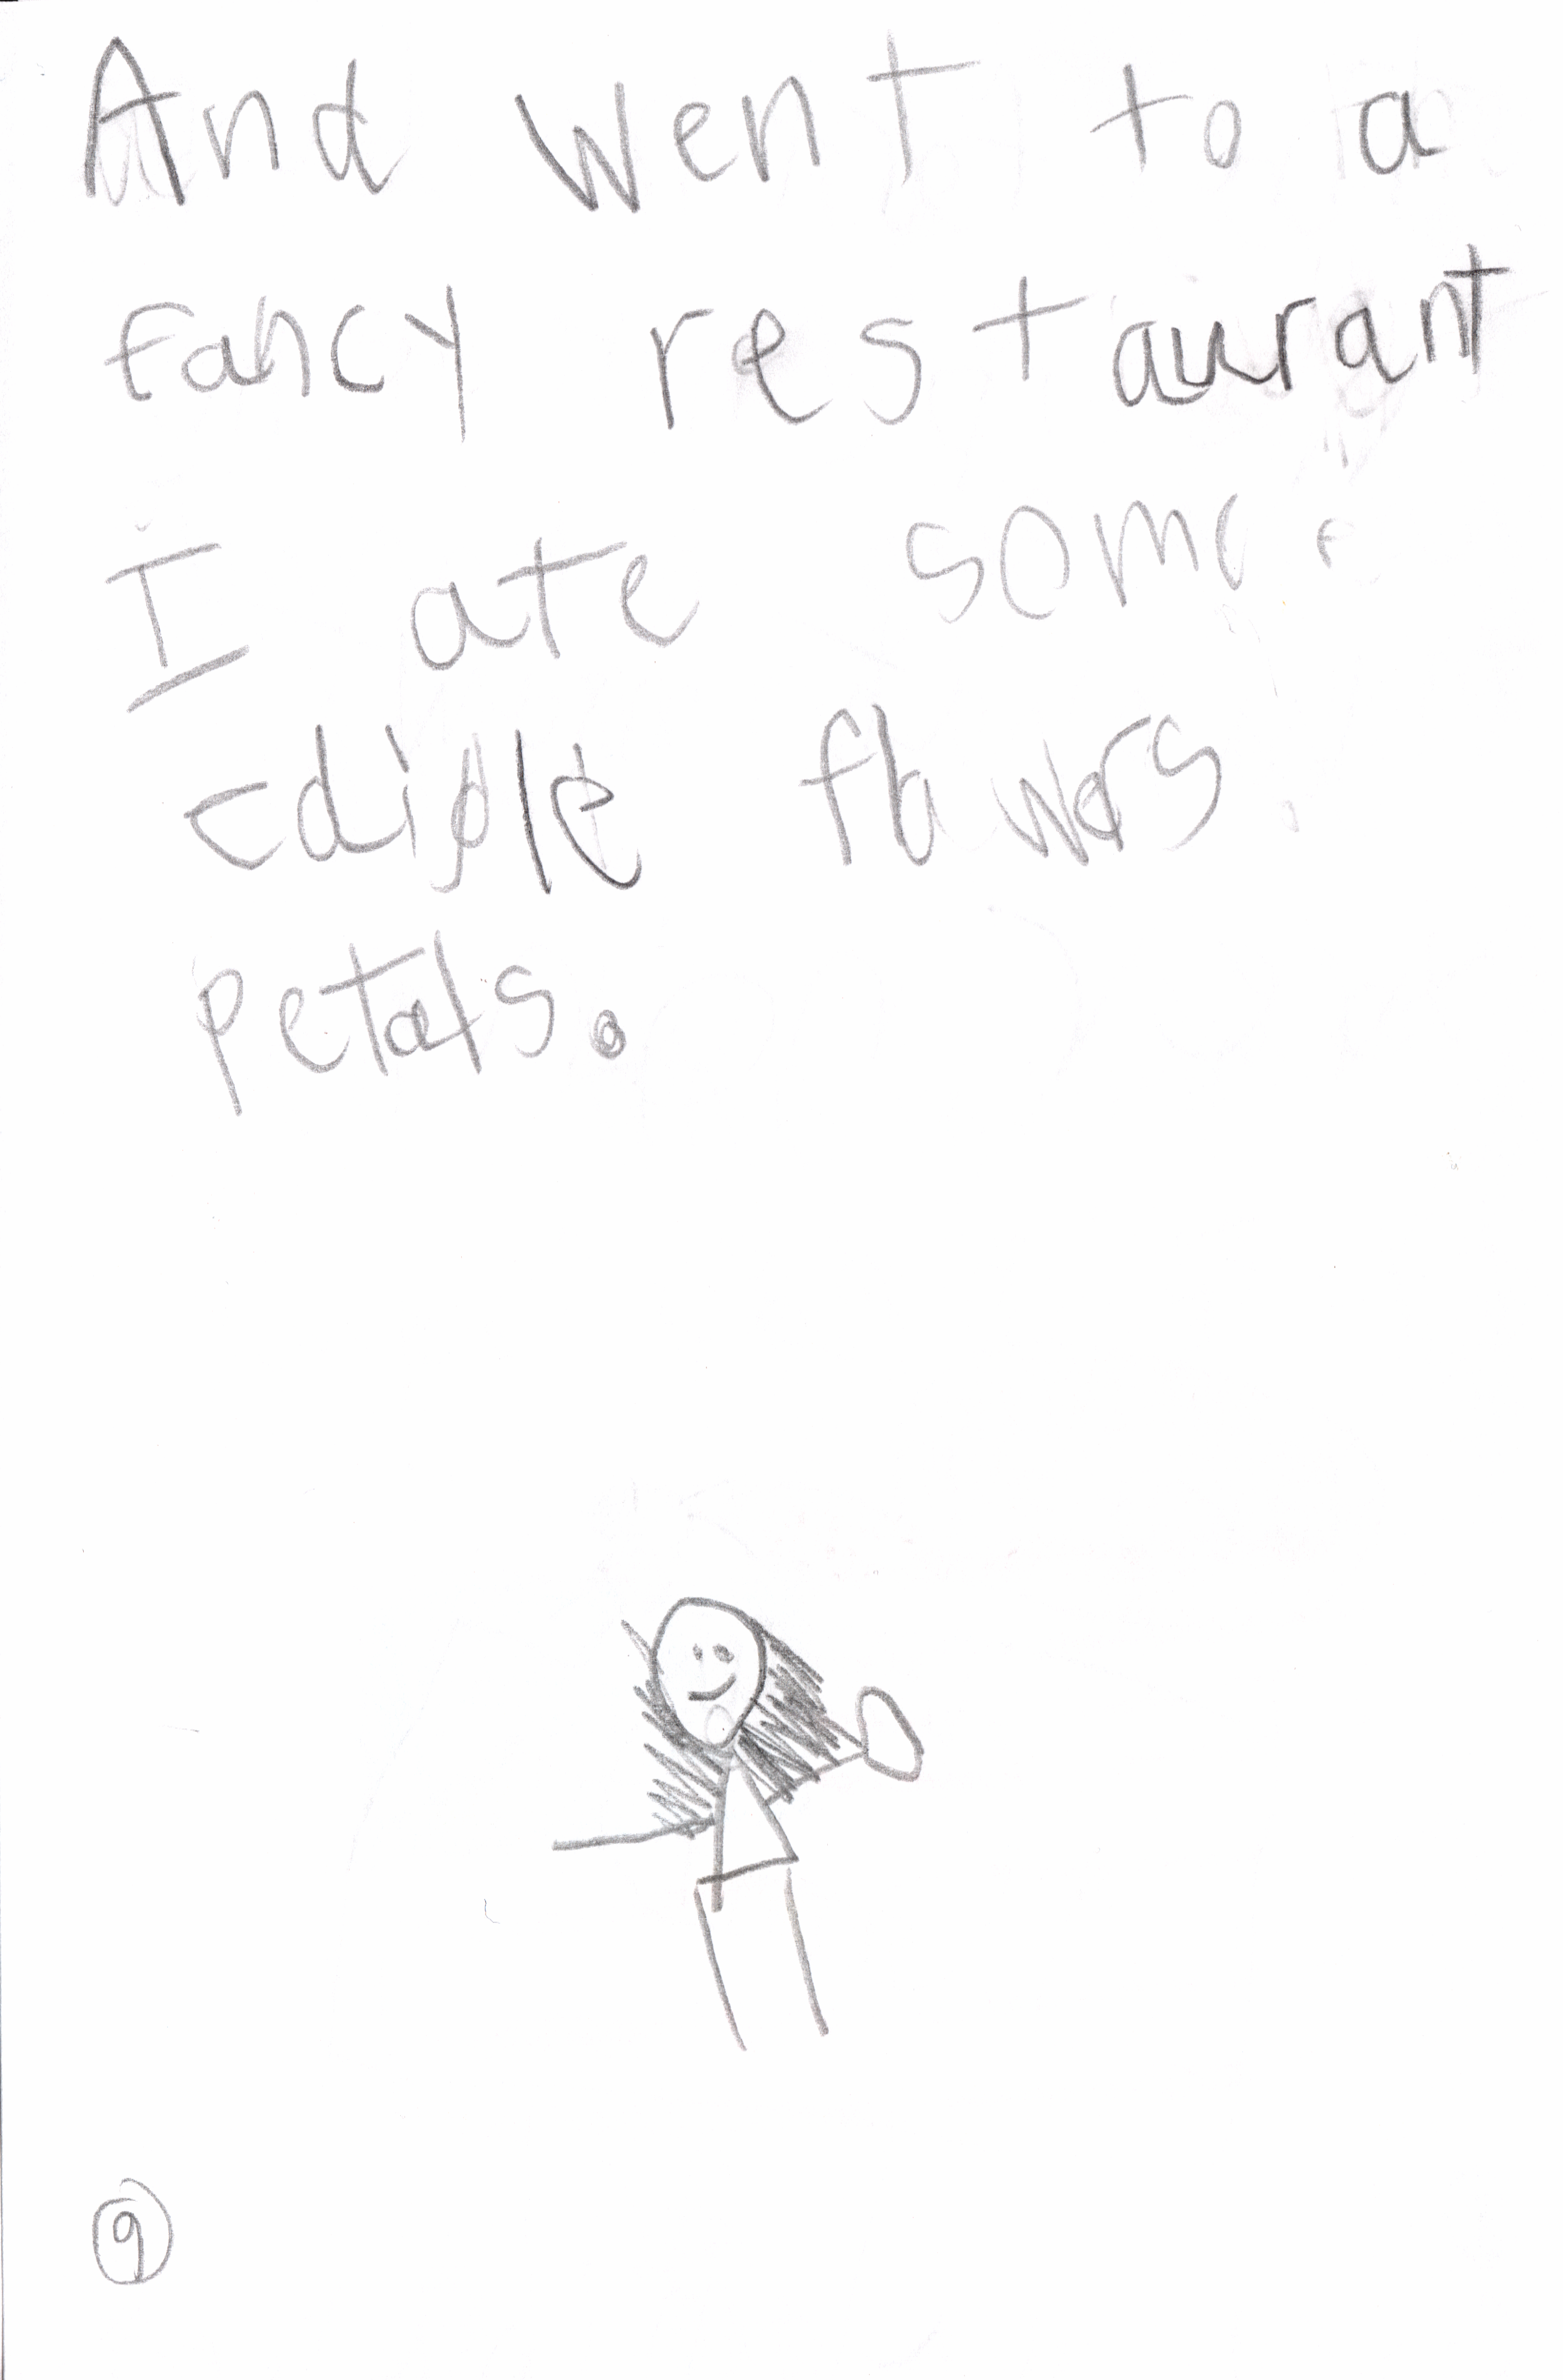 And went to a
fancy restaurant
I ate some
edible flowers
petals.
9